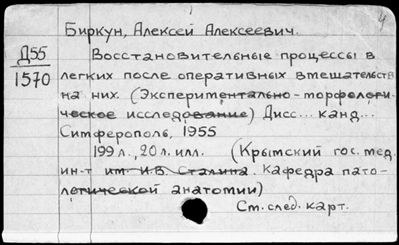 4
Биркун, Алексей Алексеевич.
Д55
1570
Восстановительные процессы в
легких после оперативных вмешательств
на них. (Экспериментально-морфологи-
ческое исследование) Дисс... канд...
Симферополь, 1955
199 л., 20 л. илл. (Крымский гос. мед.
ин-т им. И.В. Сталина. Кафедра пато-
логической анатомии)
См. след. карт.